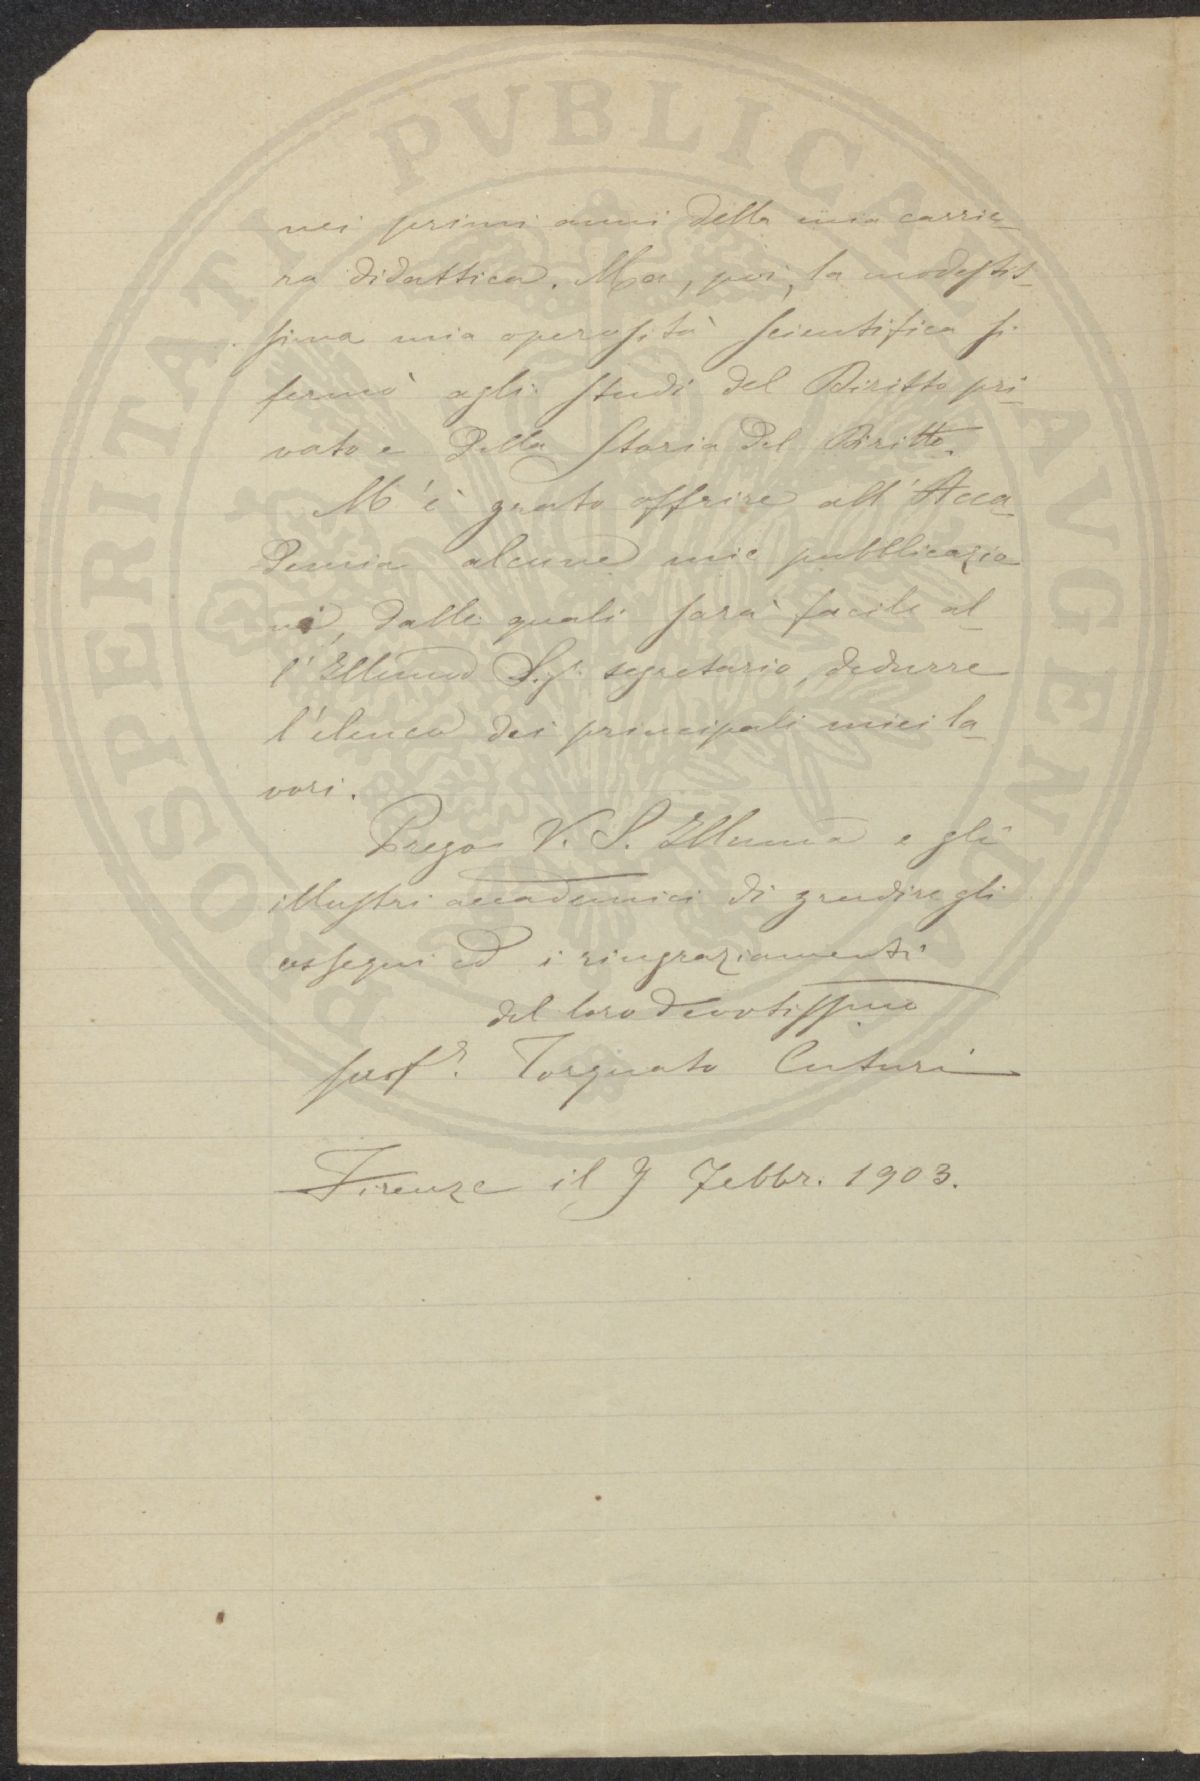 nei primi anni della mia carrie-
ra didattica. Ma, poi, la modestis-
sima mia operosità scientifica si
fermò agli studi del Diritto pri-
vato e della Storia del Diritto.
M'è grato offrire all'Acca-
demia alcune mie pubblicazio
ni, dalle quali sarà facile al-
l'Illumo Sigr. segretario, dedurre
l'elenco dei principali miei la-
vori.
Prego V. S. Illuma e gli
illustri accademici di gradire gli
ossequi ed i ringraziamenti
del loro devotissimo
profr. Torquato Cuturi
Firenze il 7 Febbr. 1903.
PROSPERITATI PVBLICAE AVGENDAE